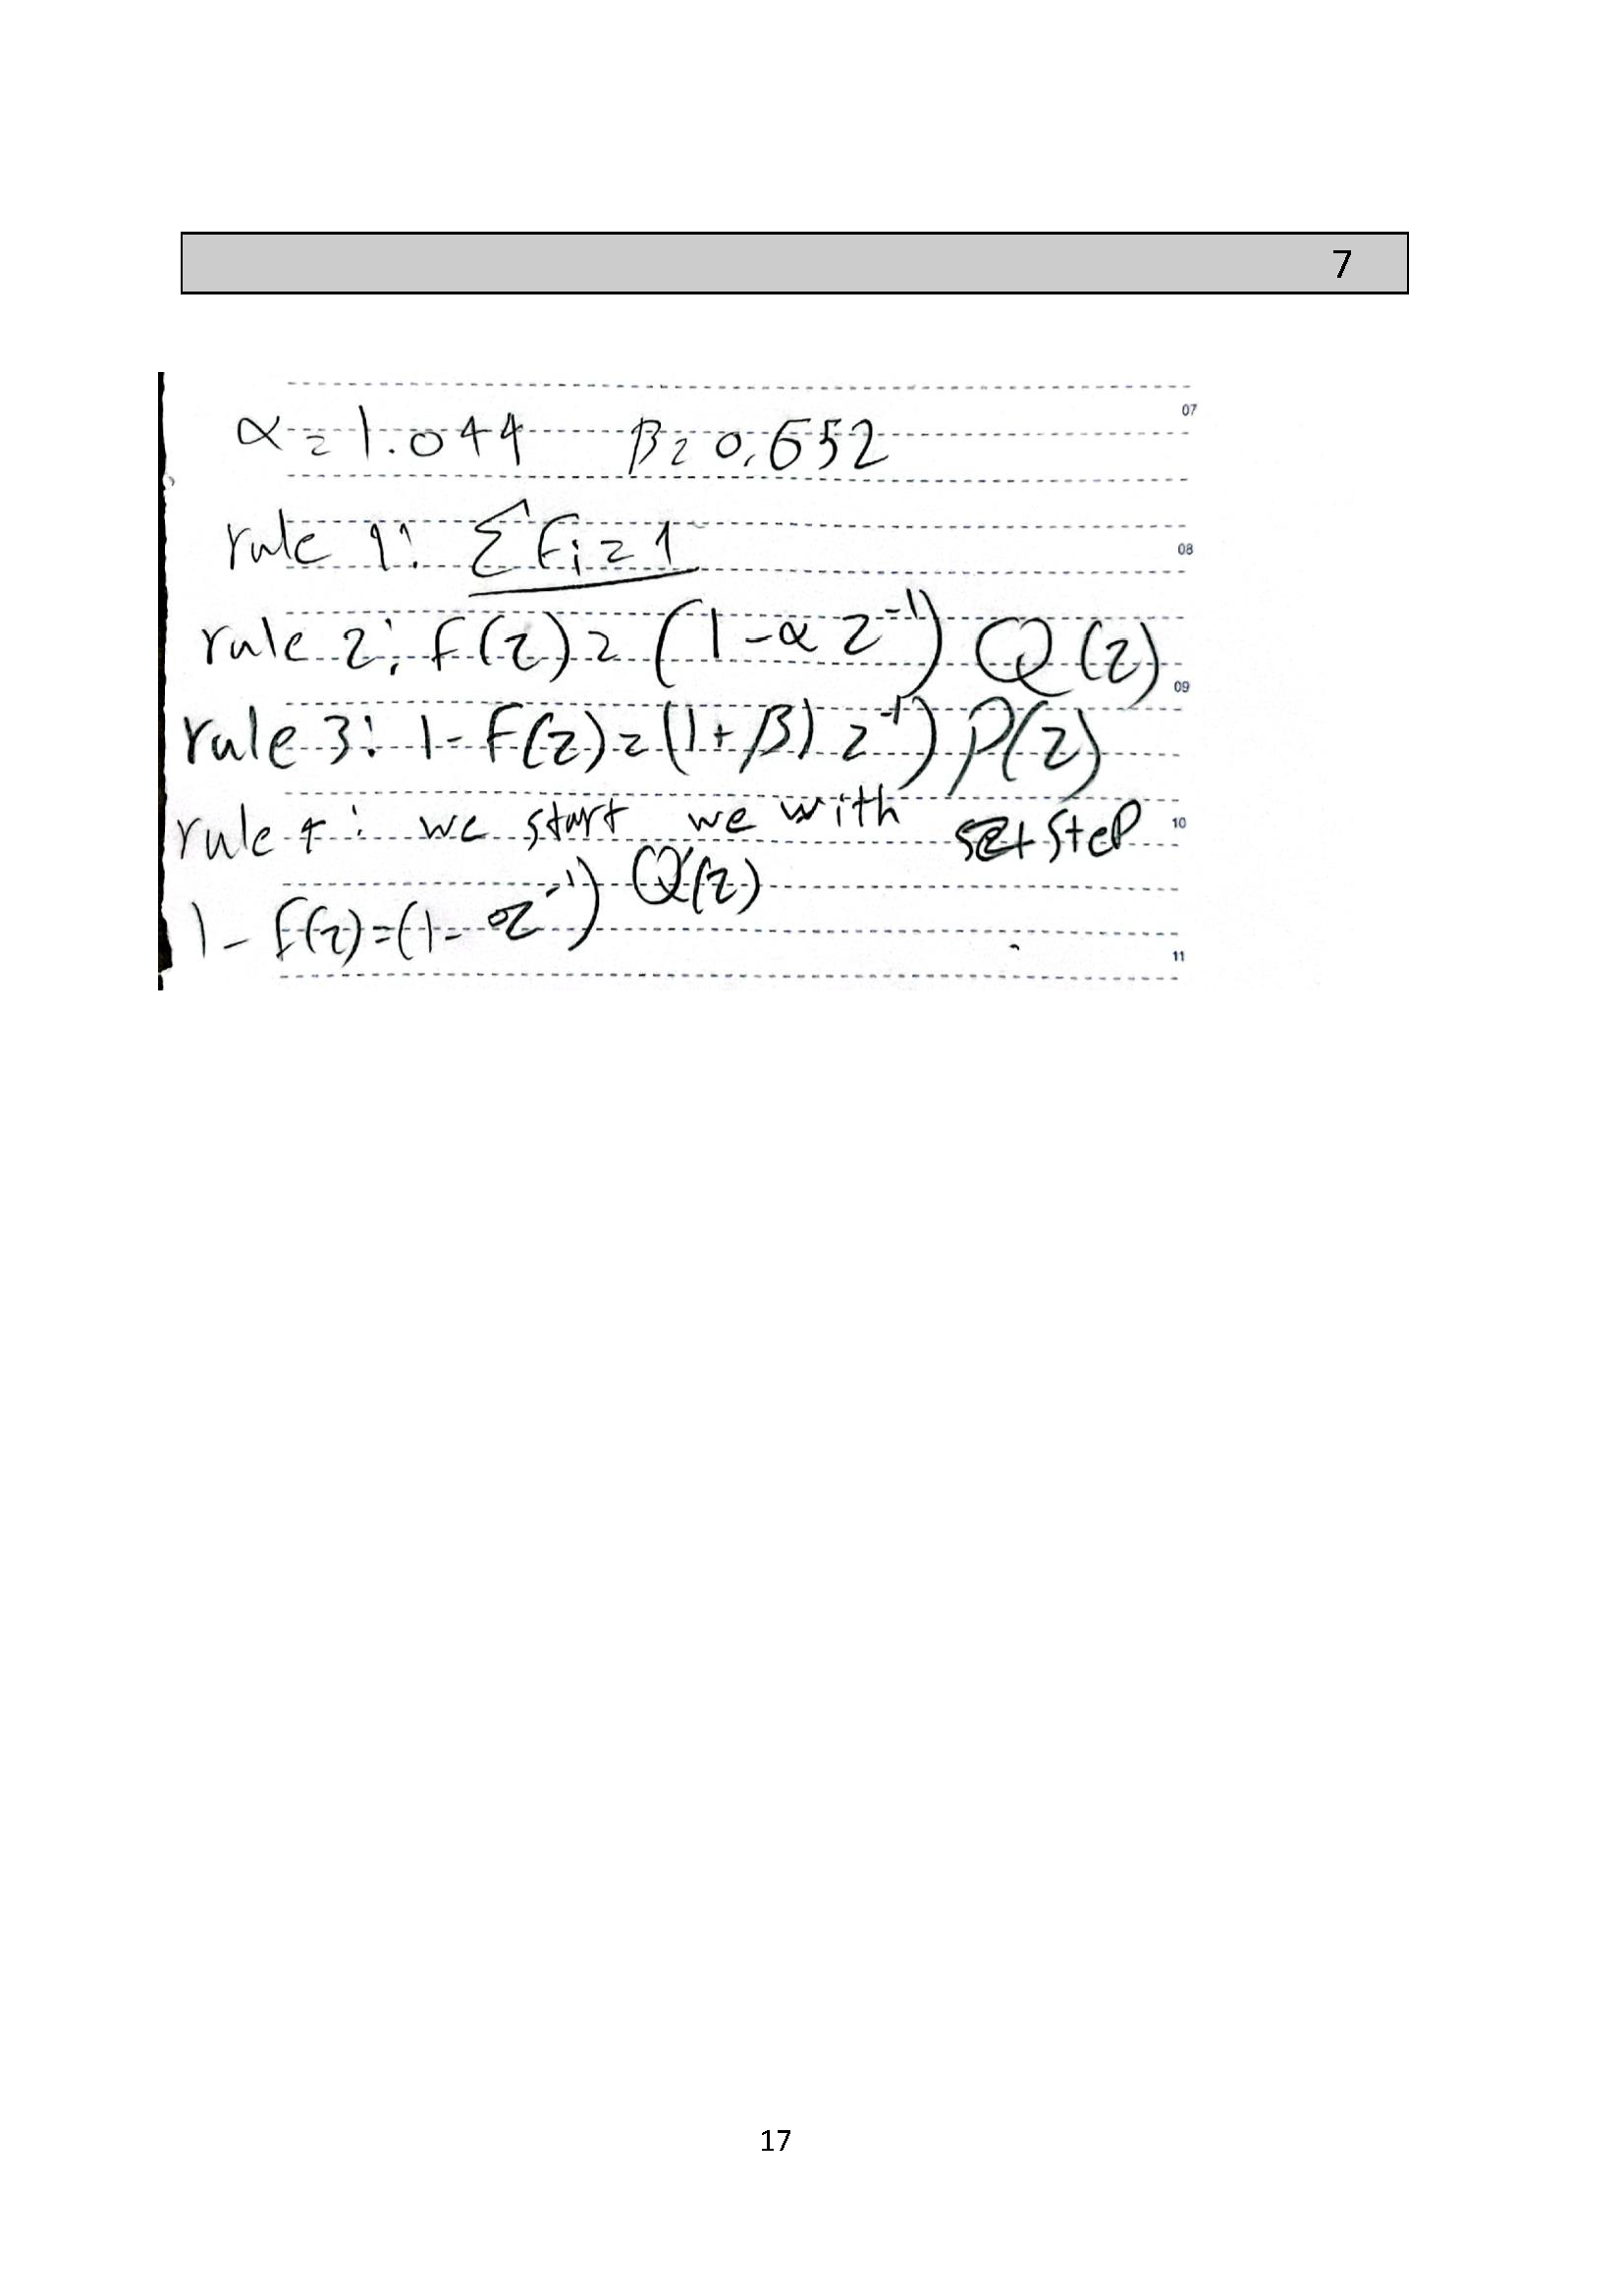 7
α = 1.044 β = 0.652
07
rule 1: Σ Fi = 1
08
rule 2: F(z) = (1 - α z⁻¹) Q(z)
09
rule 3: 1 - F(z) = (1 + β) z⁻¹) P(z)
rule 4: we start we with set step
10
1 - F(z) = (1 - z⁻¹) Q'(z)
11
17